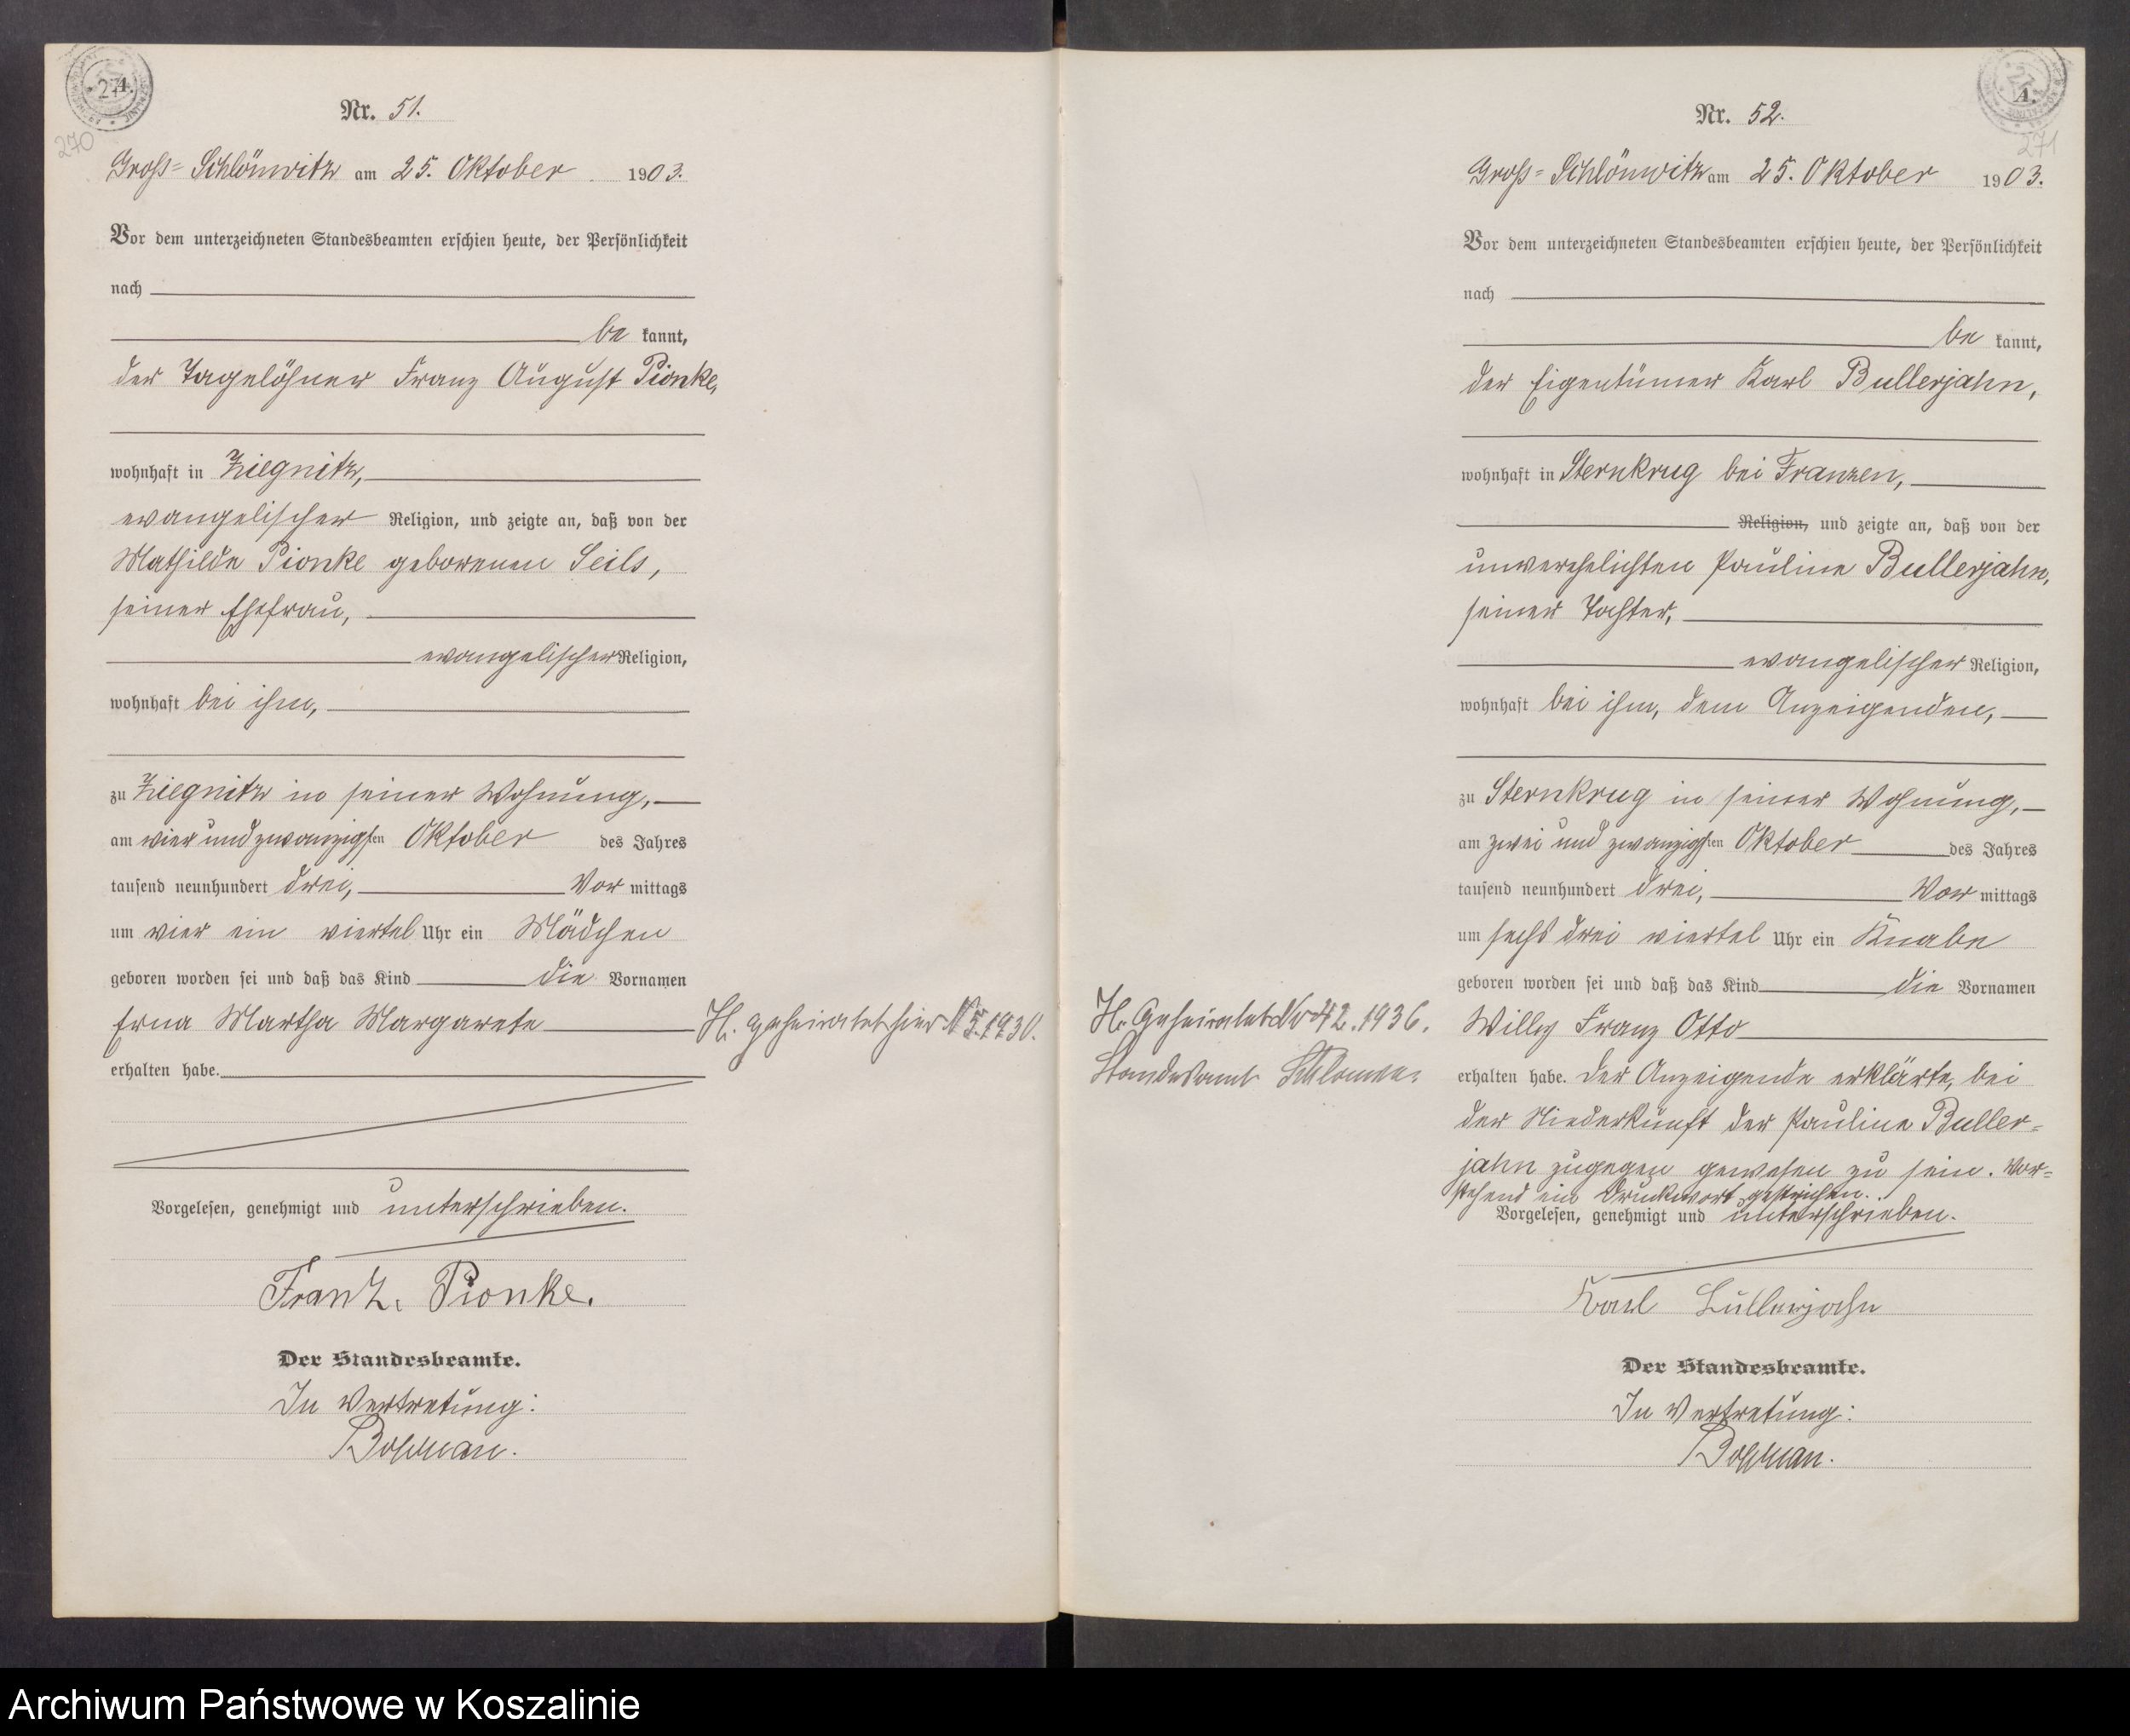 A.
270
Nr. 51.
Groß=Schlönwitz am 25. Oktober 1903.
Vor dem unterzeichneten Standesbeamten erschien heute, der Persönlichkeit
nach
be kannt,
der Tagelöhner Franz August Pionke,
wohnhaft in Ziegnitz,
evangelischer Religion, und zeigte an, daß von der
Mathilde Pionke geborenen Seils,
seiner Ehefrau,
evangelischer Religion,
wohnhaft bei ihm,
zu Ziegnitz in seiner Wohnung,
am vier und zwanzigsten Oktober des Jahres
tausend neunhundert drei, Vor mittags
um vier ein viertel Uhr ein Mädchen
geboren worden sei und daß das Kind die Vornamen
Erna Martha Margarete
erhalten habe.
H. geheiratet hier N 5. 1930.
Vorgelesen, genehmigt und unterschrieben.
Franz. Pionke.
Der Standesbeamte.
In Vertretung:
A.
271
Nr. 52.
Groß=Schlönwitz am 25. Oktober 1903.
Vor dem unterzeichneten Standesbeamten erschien heute, der Persönlichkeit
nach
be kannt,
der Eigentümer Karl Bullerjahn,
wohnhaft in Sternkrug bei Franzen,
Religion, und zeigte an, daß von der
unverehelichten Pauline Bullerjahn,
seiner Tochter,
evangelischer Religion,
wohnhaft bei ihm, dem Anzeigenden,
zu Sternkrug in seiner Wohnung,
am zwei und zwanzigsten Oktober des Jahres
tausend neunhundert drei, Vor mittags
um sechs drei viertel Uhr ein Knabe
geboren worden sei und daß das Kind die Vornamen
Willy Franz Otto
erhalten habe. Der Anzeigende erklärte, bei
der Niederkunft der Pauline Buller=
jahn zugegen gewesen zu sein. Vor=
stehend ein Druckwort gestrichen.
H. Geheiratet Nr 42. 1936.
Standesamt
Vorgelesen, genehmigt und unterschrieben.
Karl Bullerjahn
Der Standesbeamte.
In Vertretung:
Archiwum Państwowe w Koszalinie